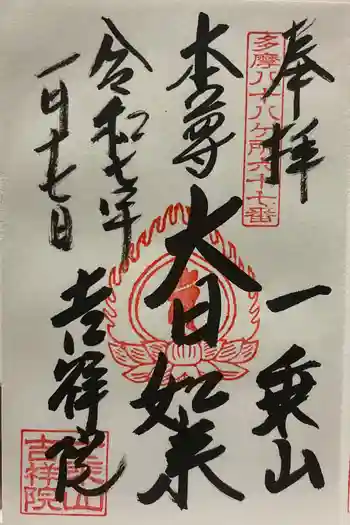 奉拝
一乗山
多摩八十八ヶ所六十七番
本尊
大日如来
令和七年
一月十七日
吉祥院
吉祥院